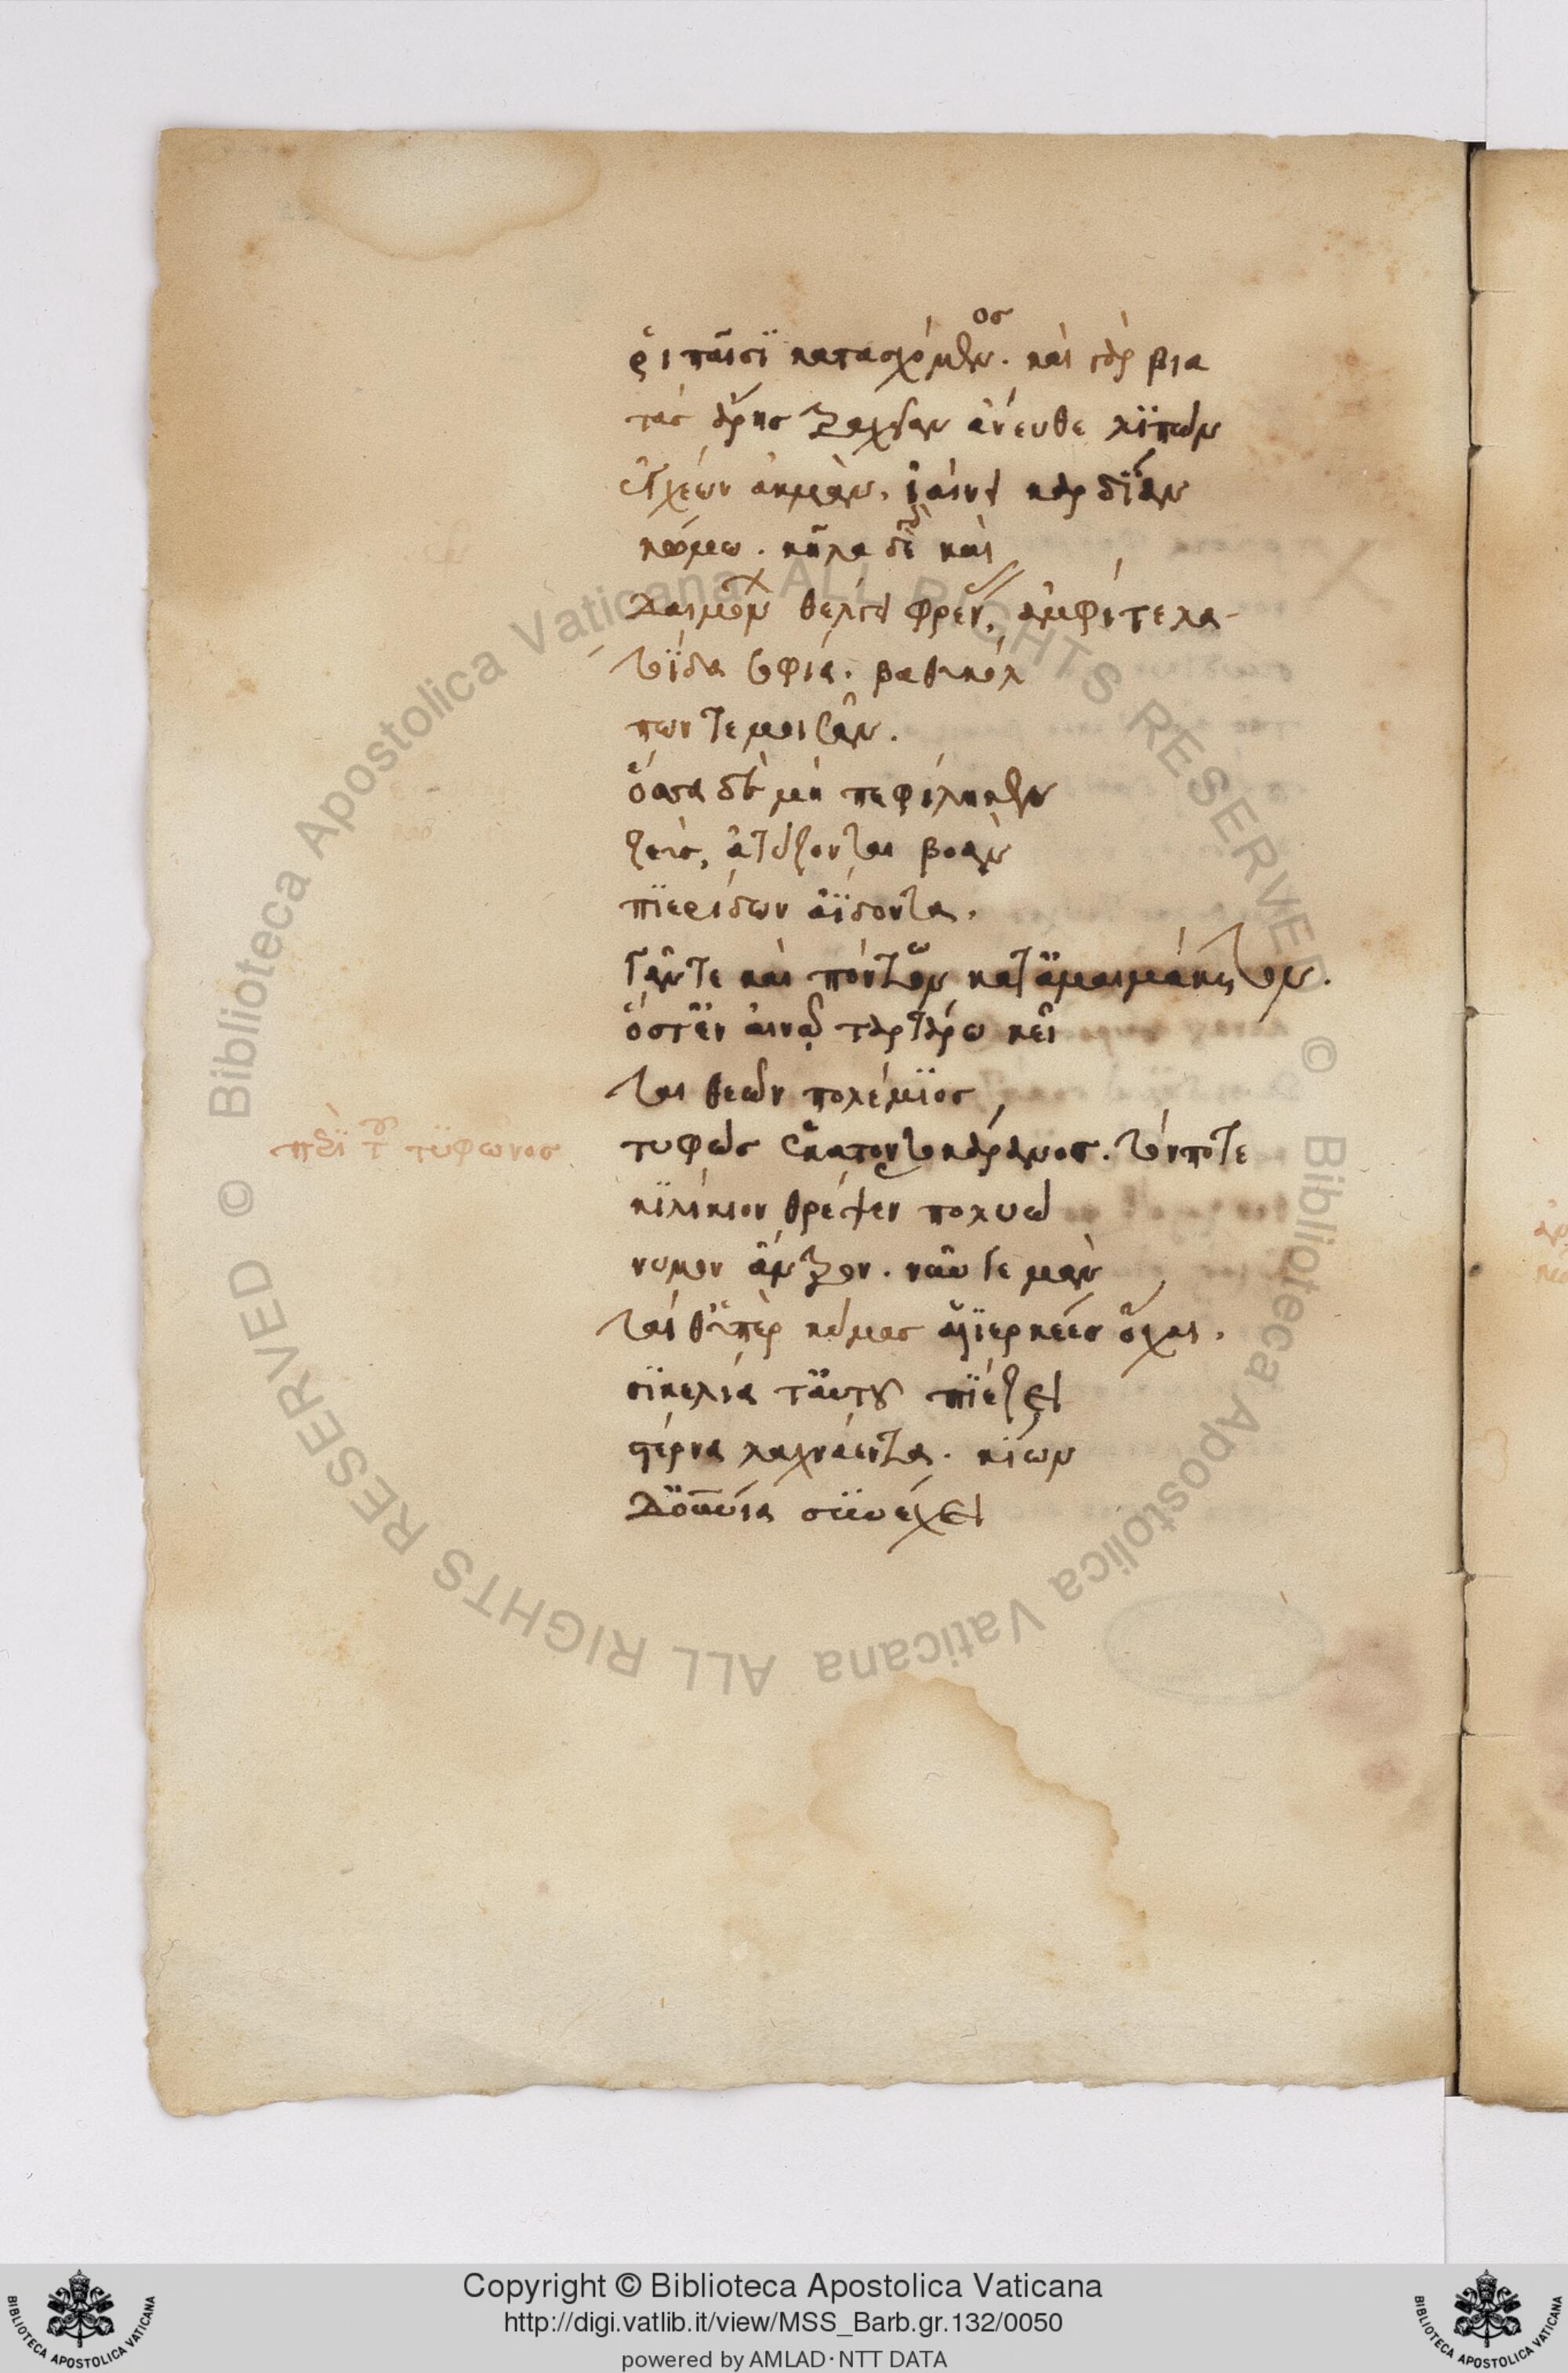 ῥιπαῖσϊ κατασχόμενος. καὶ γὰρ βια
τὰς ἄρης τραχεῖαν ἄνευθε λϊπὼν
ἐγχέων ἀκμὰν. ἰαίνει καρδΐαν
κώμω. κῆλα δὲ καὶ
δαιμόνων θέλγει φρένας, ἀμφί τε λα-
τοΐδα σοφία. βαθυκόλ
πων τε μοισᾶν.
ὅσσα δὲ μὴ πεφίληκεν
ζεὺς, ἀτύζονται βοὰν
πϊερίδων ἀΐοντα.
γᾶν τε καὶ πόντον κατ' ἀμαιμάκετον.
ὅς τ' ἐν αἰνᾶ ταρτάρω κεῖ
ται θεῶν πολέμϊος
τυφὼς ἑκατοντοκάρανος. τόν ποτε
κϊλίκιον θρέψεν πολυώ
νυμον ἄντρον. νῦν γε μὰν
ταί θ' ὑπὲρ κύμας ἁλϊερκέες ὄχθαι.
σϊκελία τ' αὐτοῦ πϊέζει
στέρνα λαχνάεντα. κΐων
δ' οὐρανία συνέχει
περὶ τοῦ τυφῶνος
Bibliotheca Apostolica Vaticana ALL RIGHTS RESERVED ©
Copyright © Biblioteca Apostolica Vaticana
http://digi.vatlib.it/view/MSS_Barb.gr.132/0050
powered by AMLAD · NTT DATA
BIBLIOTECA APOSTOLICA VATICANA
BIBLIOTECA APOSTOLICA VATICANA